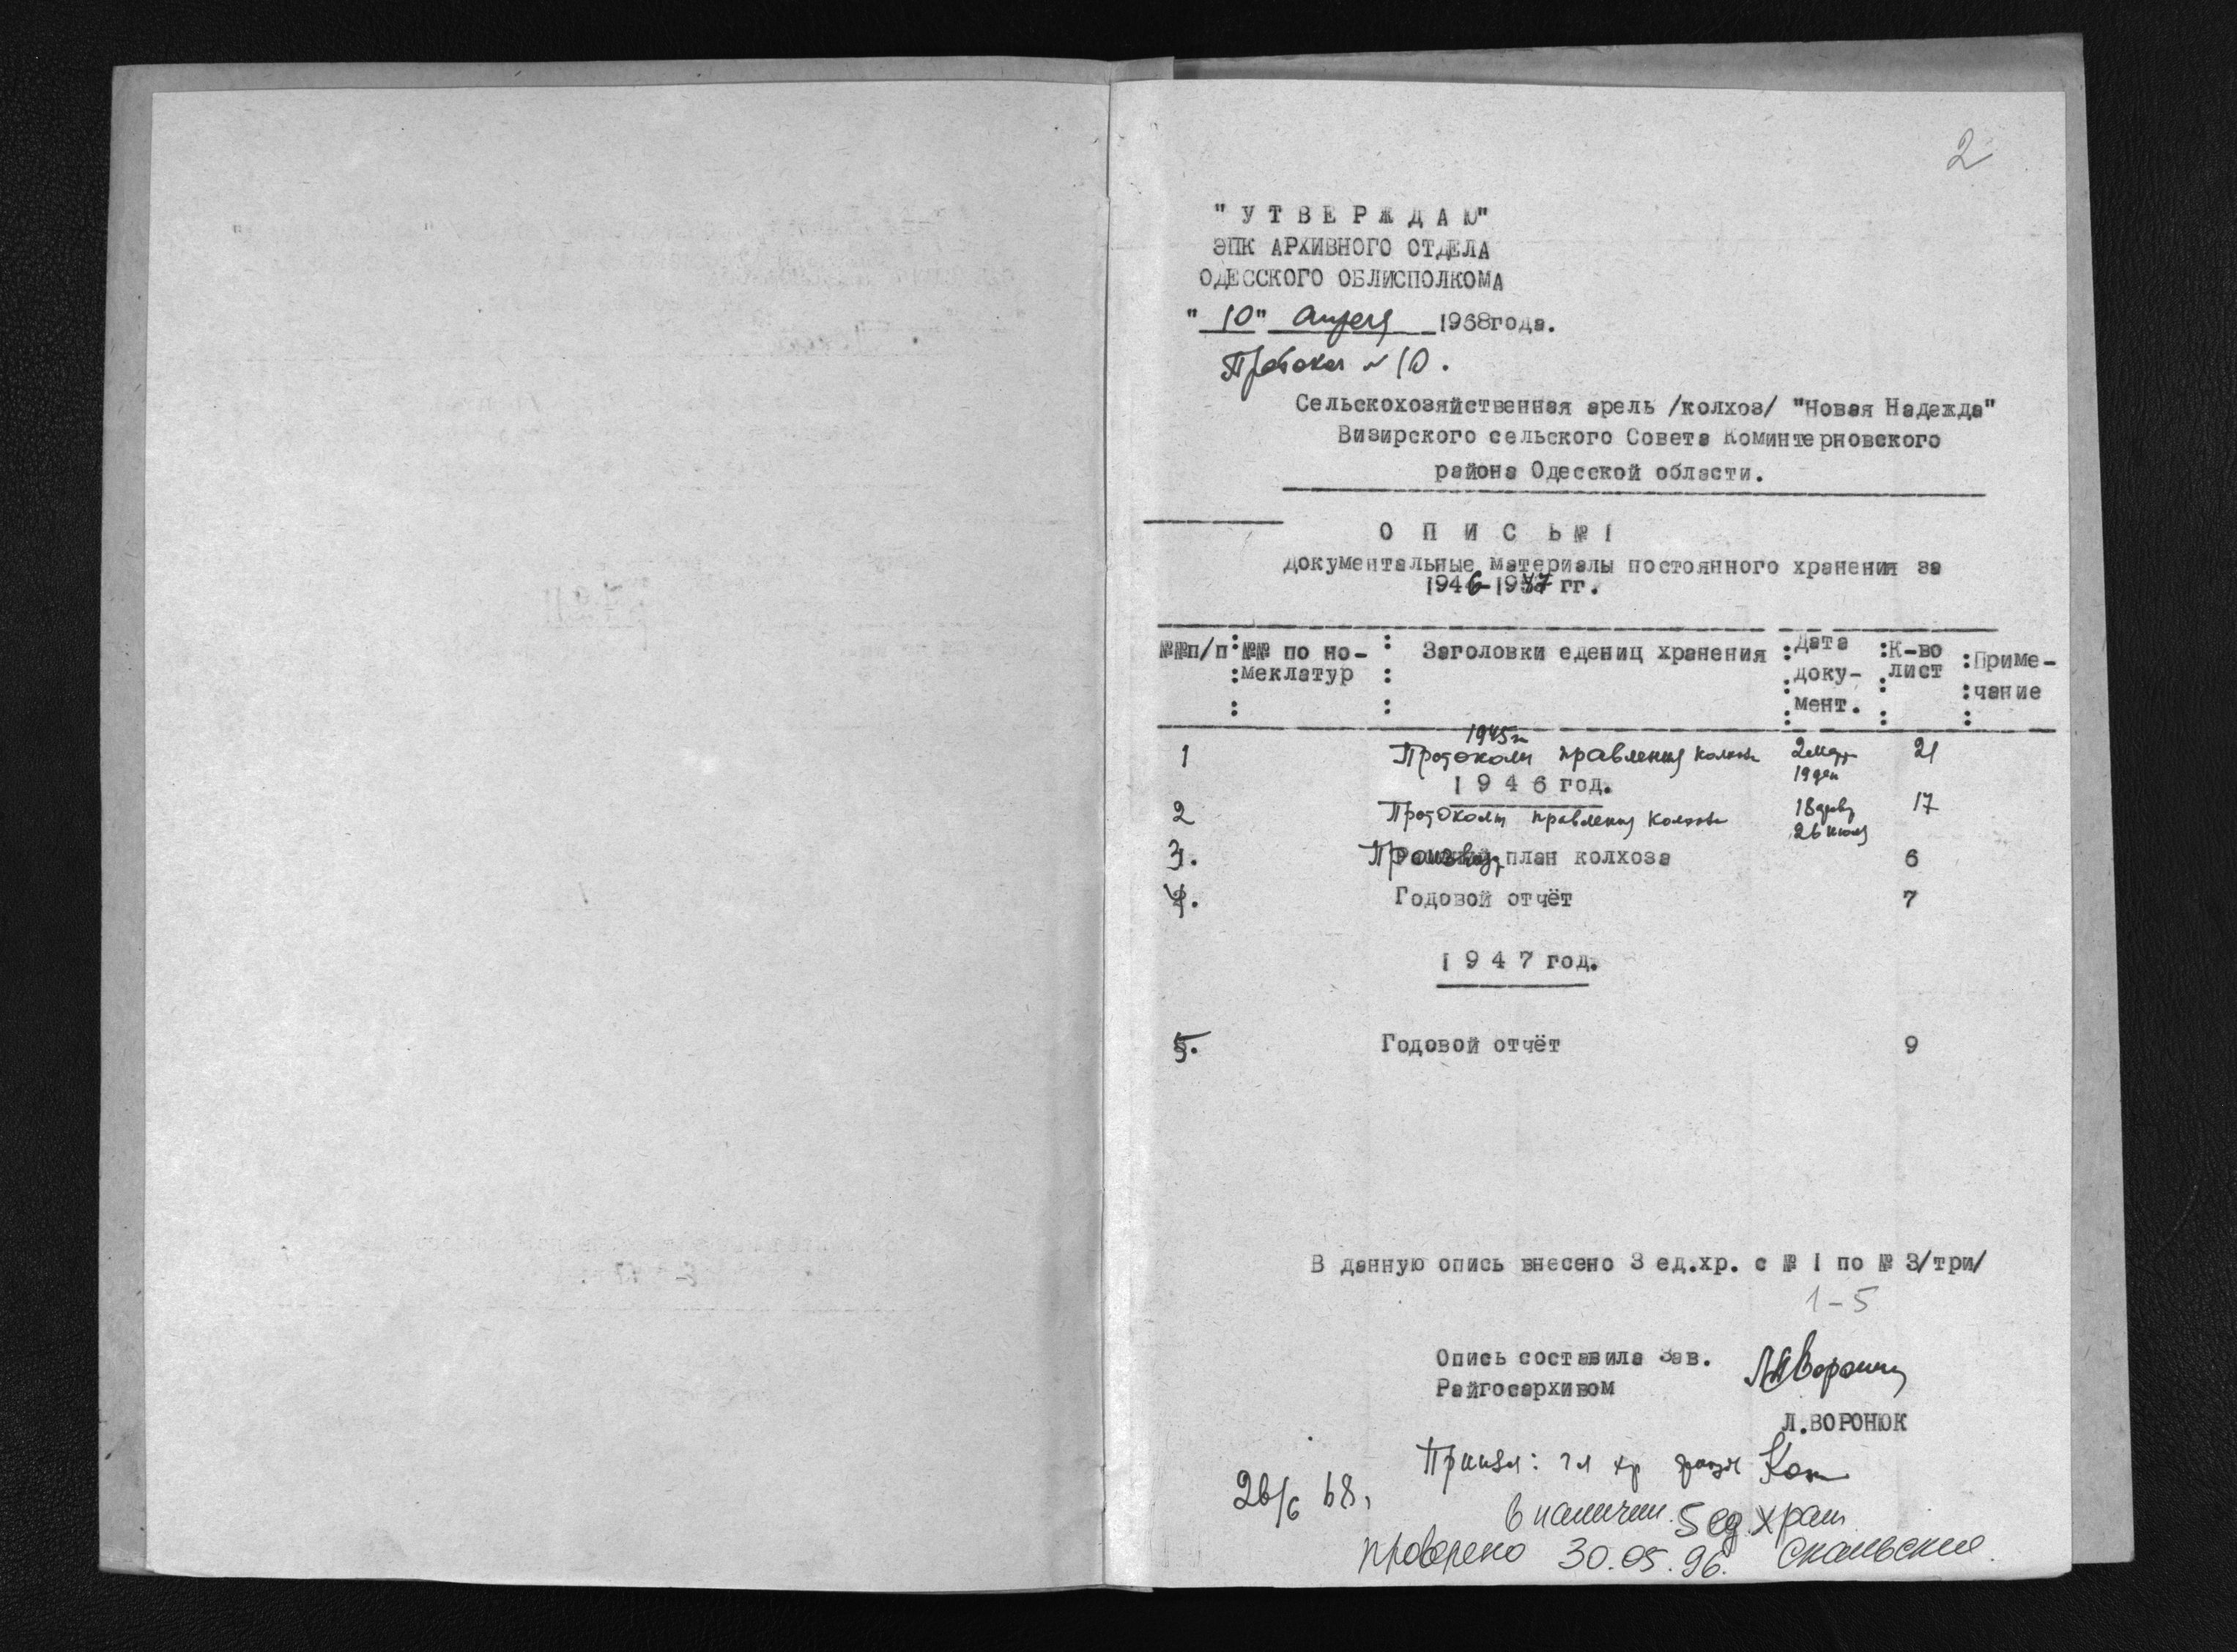 2
"УТВЕРЖДАЮ"
ЭПК АРХИВНОГО ОТДЕЛА
ОДЕССКОГО ОБЛИСПОЛКОМА
"10" Апреля 1968года.
Протокол № 10.
Сельскохозяйственная арель /колхоз/ "Новая Надежда"
Визирского сельского Совета Коминтерновского
района Одесской области.
ОПИСЬ № 1
документальные материалы постоянного хранения за
1946-1947 гг.
№№п/п : №№ по но- : Заголовки едениц хранения : Дата : К-во : Приме-
: меклатур : : доку- : лист : чание
: : : мент. : :
1945г
1 Протоколы правления колхоза 2 мар 21
1946 год. 19 дек
2 Протоколы правления колхоза 18 17
26 июля
3. Производ план колхоза 6
4. Годовой отчёт 7
1947 год.
5. Годовой отчёт 9
В данную опись внесено 3 ед.хр. с № 1 по № 3/три/
1-5
Опись составила Зав.
Райгосархивом
Л.ВОРОНЮК
Принял: гл хр
26/6 68,
В наличии 5 ед. хран
проверено 30.05.96.